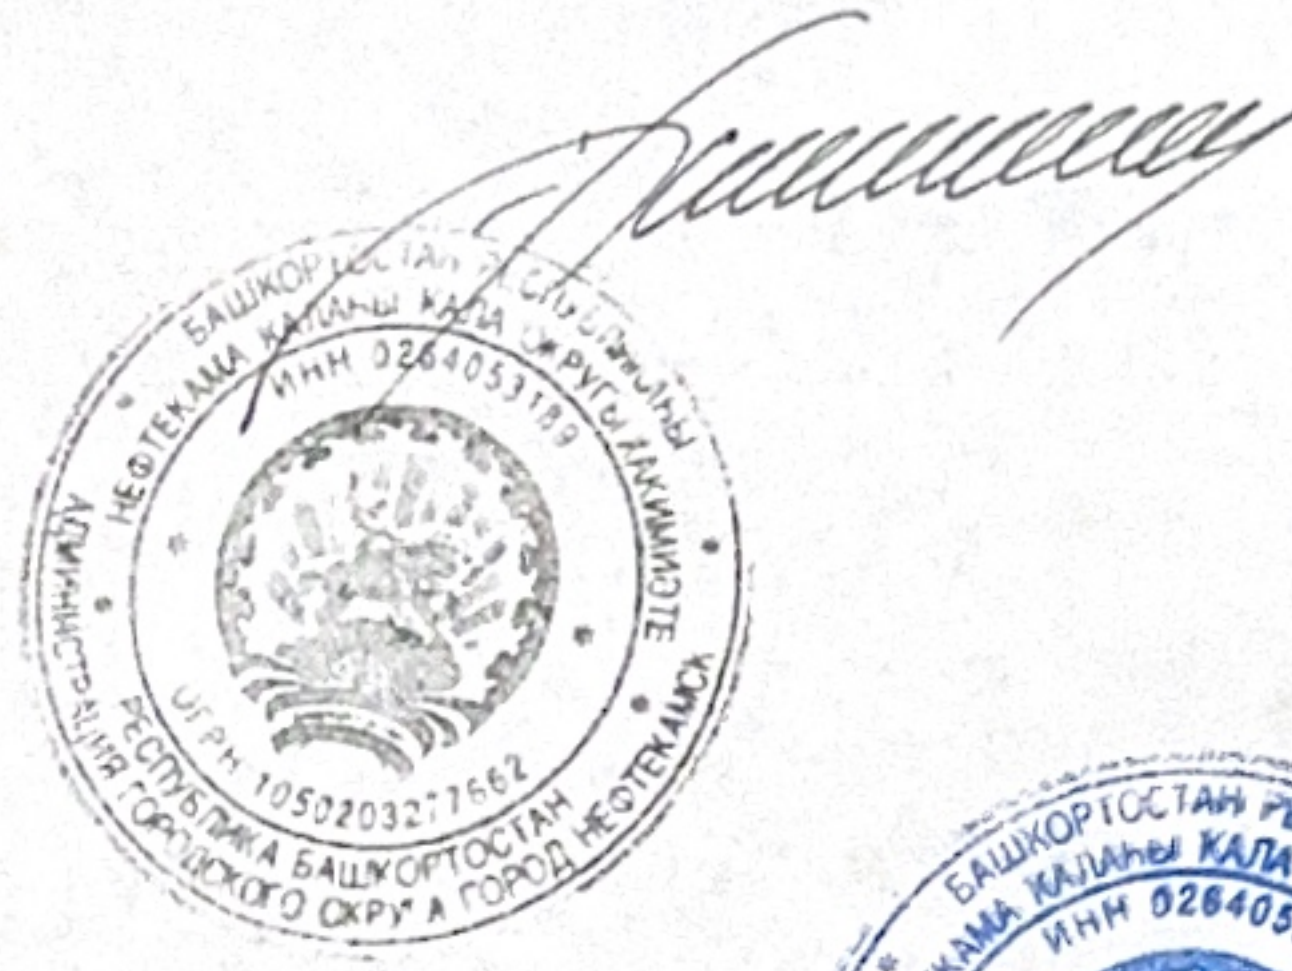 БАШКОРТОСТАН РЕСПУБЛИКАҺЫ
НЕФТЕКАМА ҠАЛАҺЫ ҠАЛА ОКРУГЫ ХАКИМИӘТЕ
ИНН 0264053189
ОГРН 1050203277662
РЕСПУБЛИКА БАШКОРТОСТАН
АДМИНИСТРАЦИЯ ГОРОДСКОГО ОКРУГА ГОРОД НЕФТЕКАМСК
БАШКОРТОСТАН
ҠАЛАҺЫ ҠАЛА
ИНН 026405